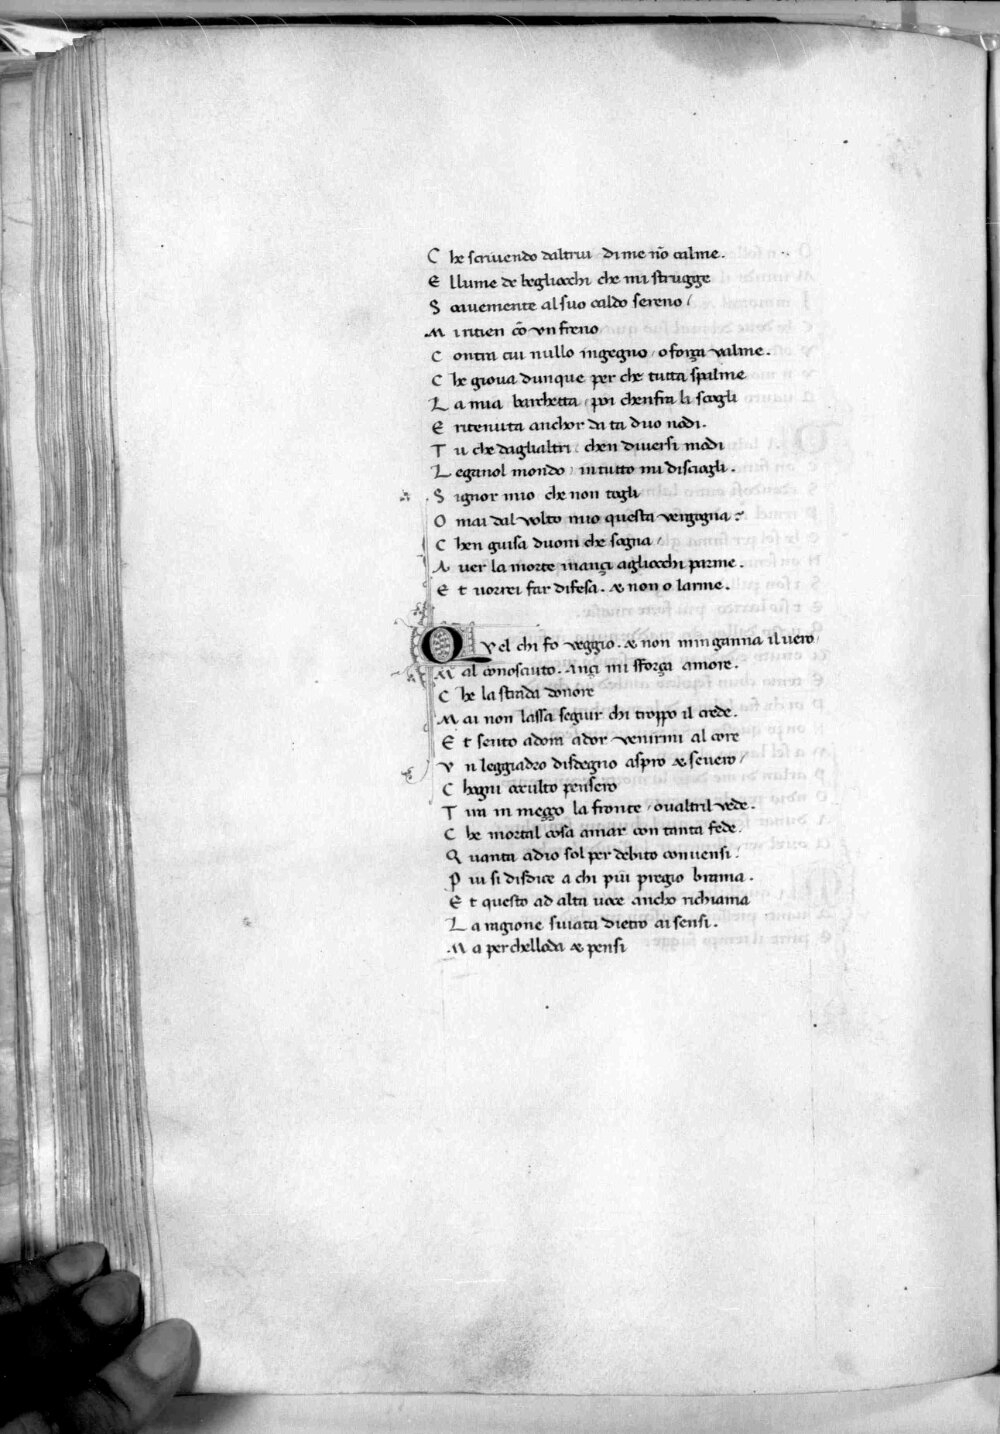 C he scriuendo daltrui di me nō calme.
E llume de begliocchi che mi strugge
S oauemente al suo caldo sereno /
M i ritien cō vn freno
C ontra cui nullo ingegno / o forza valme.
C he gioua dunque per che tutta spalme
L a mia barchetta / poi chenfra li scogli
E ritenuta anchor da ta duo nodi.
T u che daglialtri chen diuersi modi
L eganol mondo / in tutto mi disciogli.
S ignor mio che non togli
O mai dal volto mio questa vergogna ?
C hen guisa duom che sogna /
A uer la morte inançi agliocchi parme.
E t uorrei far difesa. & non o larme.
Q vel chi fo veggio. & non minganna il uero /
M al conosciuto. Ançi mi sforça amore.
C he la strada donore
M ai non lassa seguir chi troppo il crede.
E t sento adora ador venirmi al core
V n leggiadro disdegno aspro & seuero /
C hogni occulto pensero
T ira in meççо la fronte / oualtril vede.
C he mortal cosa amar con tanta fede.
Q uanta adio sol per debito conuensi.
P iu si disdice a chi piu pregio brama.
E t questo ad alta uoce ancho richiama
L a ragione suiata dietro ai sensi.
M a per chelloda & pensi